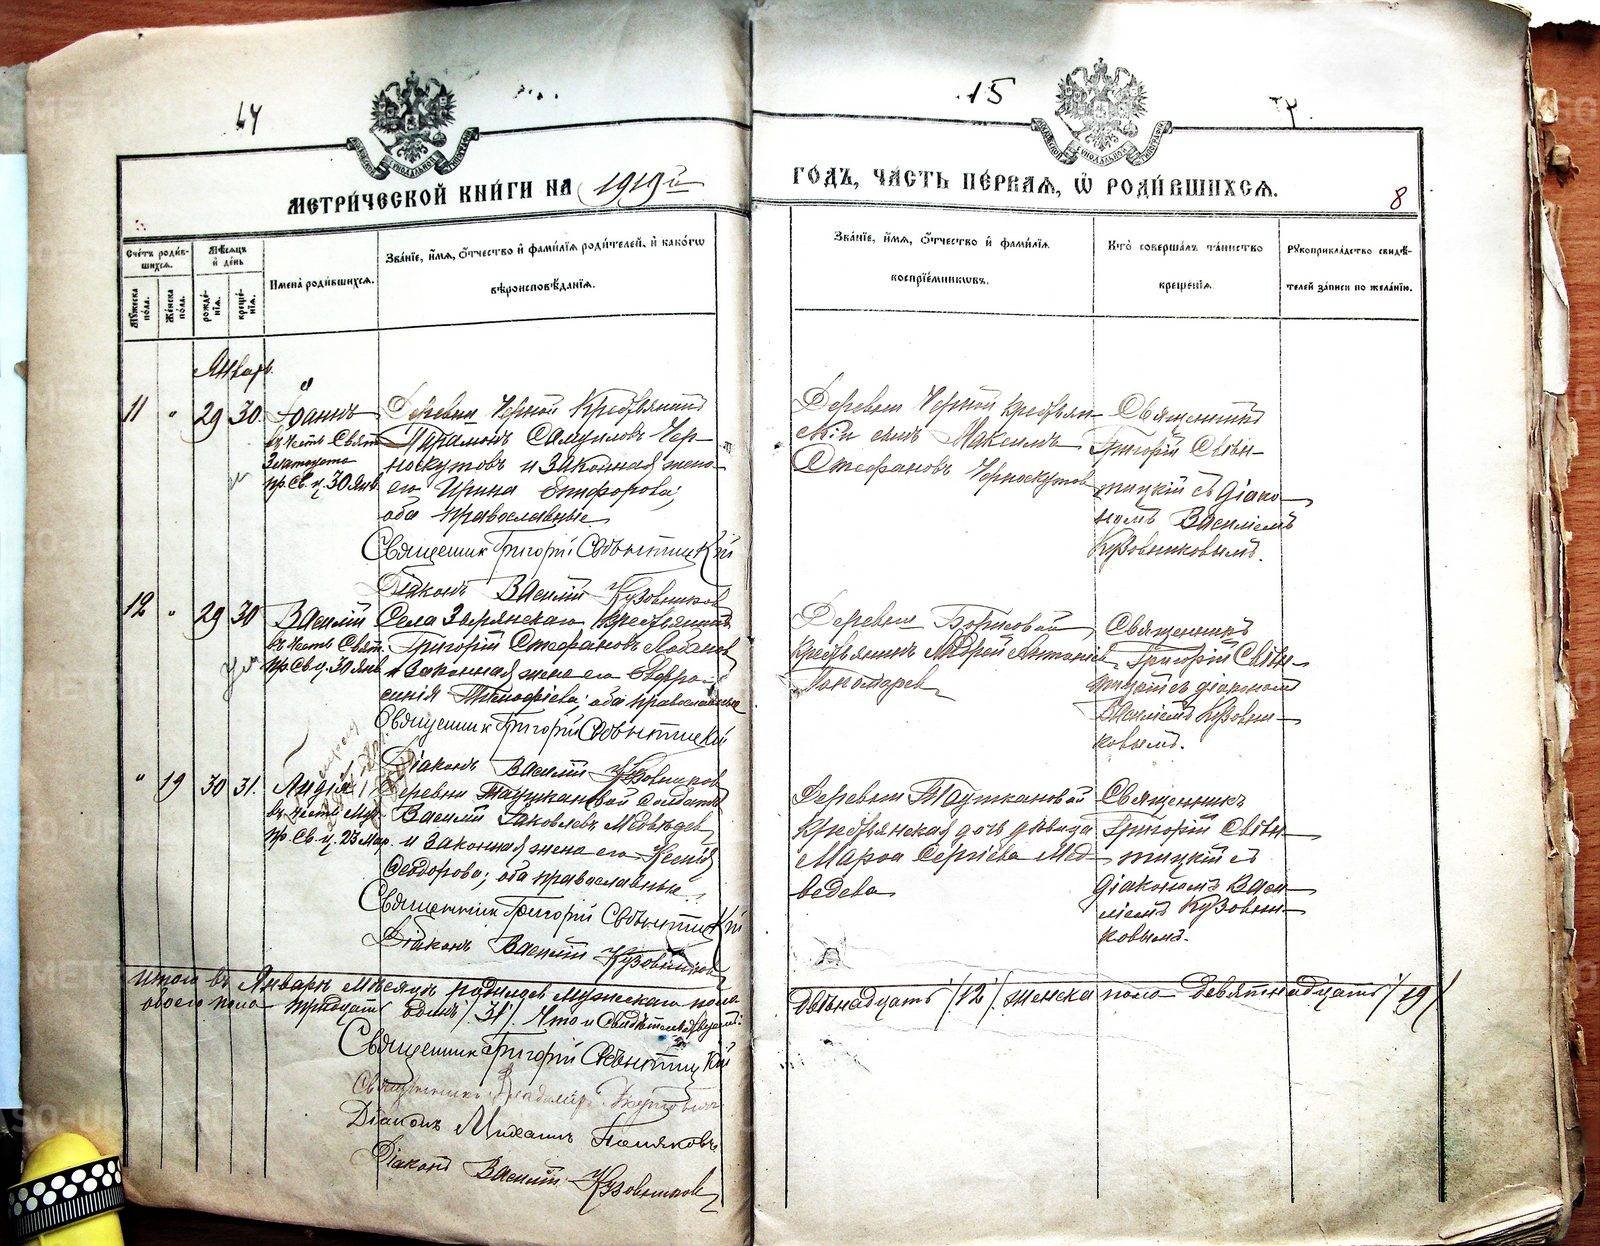 14
15
МЕТРИ́ЧЕСКОЙ КНИ́ГИ НА 1919й ГОДЪ, ЧАСТЬ ПЕ́РВАЯ, Ѿ РОДИ́ВШИХСЯ.
8
Сче́тъ роди́вшихся.
Му́жеска по́ла.
Же́нска по́ла.
Мѣ́сяцъ и́ де́нь
рожде́нія.
креще́нія.
И҆мена̀ роди́вшихся.
Зва́ніе, и҆́мя, о҆́тчество и҆ фами́лія роди́телей, и҆ како́гѡ вѣроисповѣ́данія.
Зва́ніе, и҆́мя, о҆́тчество и҆ фами́лія воспрїе́мникѡвъ.
Кто̀ соверша́лъ та́инство креще́нія.
Рꙋкоприкла́дство свидѣ́телей за́писи по жела́нію.
Январь
11 " 29 30.
Іоаннъ
въ честь Свят.
Златоуста
пр. Св. ц. 30 Янв.
Деревни Черной Крестьянинъ
Парамонъ Самуиловъ Чер-
носкутовъ и законная жена
его Ирина Епифорова;
оба православные
Священник Григорій Свѣнтицкій
Діаконъ Василій Кузовников
Деревни Черной крестьян-
скій сынъ Максимъ
Стефановъ Черноскутов
Священник
Григорій Свѣн-
тицкій съ діако-
номъ Василіемъ
Кузовниковымъ.
12 " 29 30
Василій
въ честь Свят.
пр. Св. ц. 30 Янв.
Села Зырянскаго Крестьянинъ
Григорій Стефановъ Лобанов
и законная жена его Евфро-
синія; оба православные
Священник Григорій Свѣнтицкій
Діаконъ Василій Кузовников
Деревни Борисовой
крестьянинъ Андрей Антоніев
Пономарев
Священникъ
Григорій Свѣн-
тицкій съ діакономъ
Василіемъ Кузовни-
ковымъ.
" 19 30 31.
Лидія
въ честь Муч.
пр. Св. ц. 23 Мар.
Деревни Таушкановой Солдатъ
Василій Іаковлевъ Медвѣдев
и законная жена его Ксенія
Ѳеодорова; оба православные
Священник Григорій Свѣнтицкій
Діаконъ Василій Кузовников
Деревни Таушкановой
Крестьянская дочь дѣвица
Марѳа Сергіева Мед-
ведева
Священникъ
Григорій Свѣн-
тицкій съ
діакономъ Васи-
ліемъ Кузовни-
ковымъ.
Итого въ Январѣ мѣсяцѣ родилось Мужескаго пола двѣнадцать /12/ женска пола девятнадцать /19/
обоего пола тридцать одинъ /31/. Что и
Священник Григорій Свѣнтицкій
Священникъ Владиміръ
Діаконъ Михаилъ Поляковъ
Діаконъ Василій Кузовников